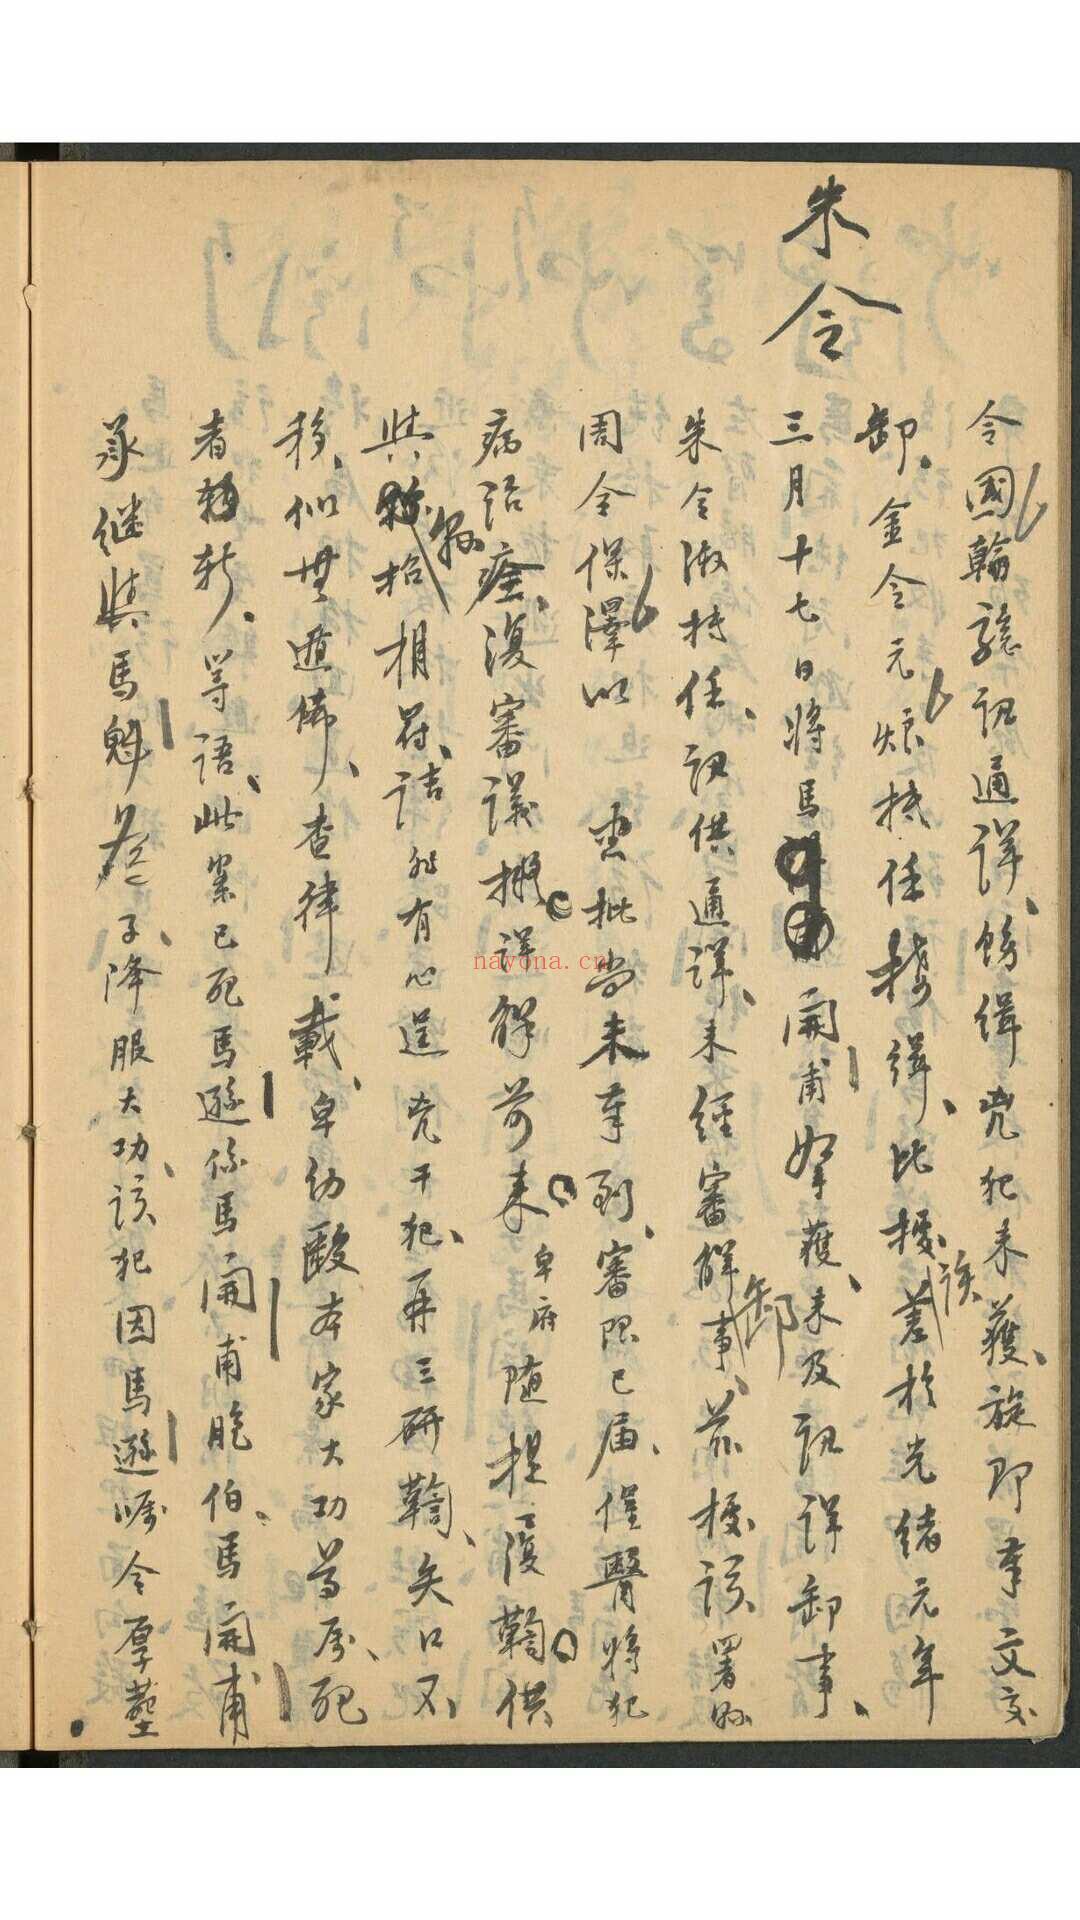 令國輪驗訊通詳、飭緝兇犯未獲、旋即奉文交
卸、金令元烺抵任接緝、比據該差於光緒元年
三月十七日將馬開甫拏獲、未及訊詳卸事、
朱令淑持任、訊供通詳、未經審解卸事、茲據該署縣
周令保澤以 憲批尚未奉到、審限已屆、催醫將犯
病治痊、復審議擬詳解前來卑府隨提覆鞫供
與縣招相符、詰非有心逞兇干犯、再三研鞫、矢口不
移、似無遁飾、查律載、卑幼毆本家大功尊属、死
者斬、等語、此案已死馬遜係馬開甫胞伯、馬開甫
承繼與馬魁 子、降服大功、該犯因馬遜囑令厚塟
朱令
nayona.cn